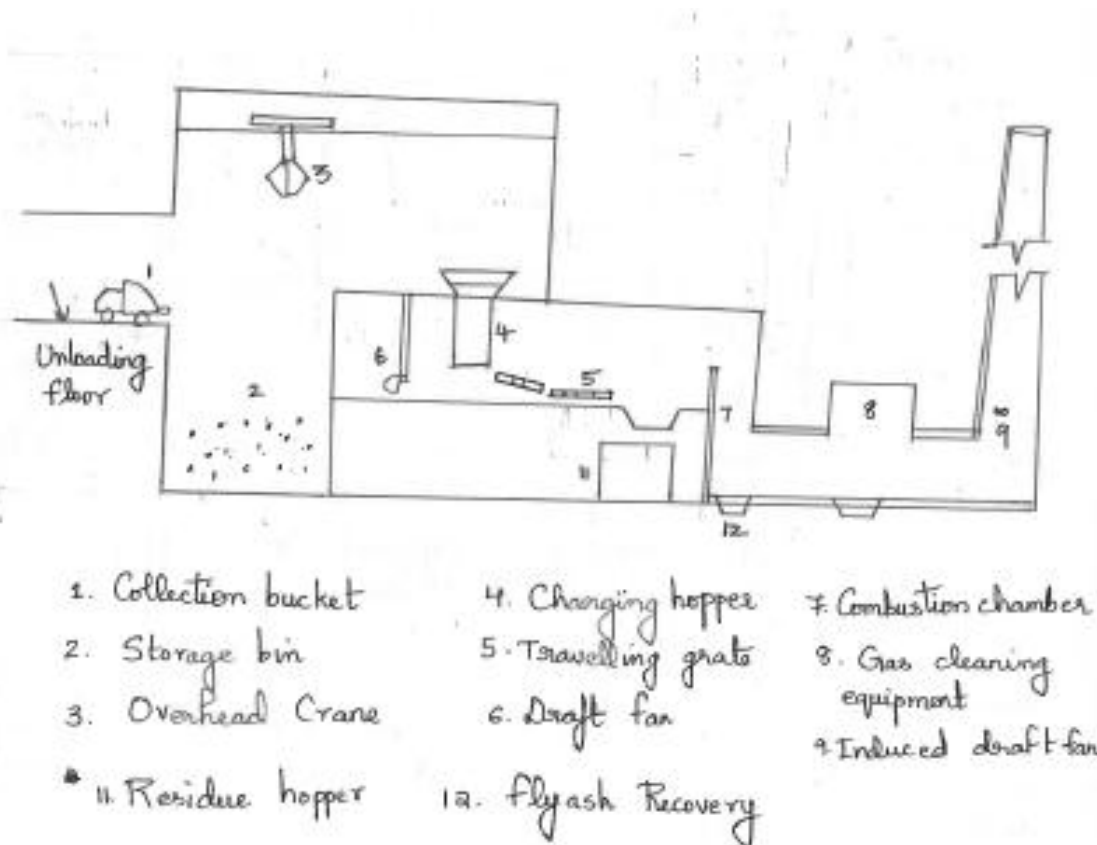 3
1
Unloading
floor
2
6
4
5
7
8
9
11
12
1. Collection bucket
2. Storage bin
3. Overhead Crane
11. Residue hopper
4. Charging hopper
5. Travelling grate
6. Draft fan
12. flyash Recovery
7. Combustion chamber
8. Gas cleaning
equipment
9. Induced draft fan